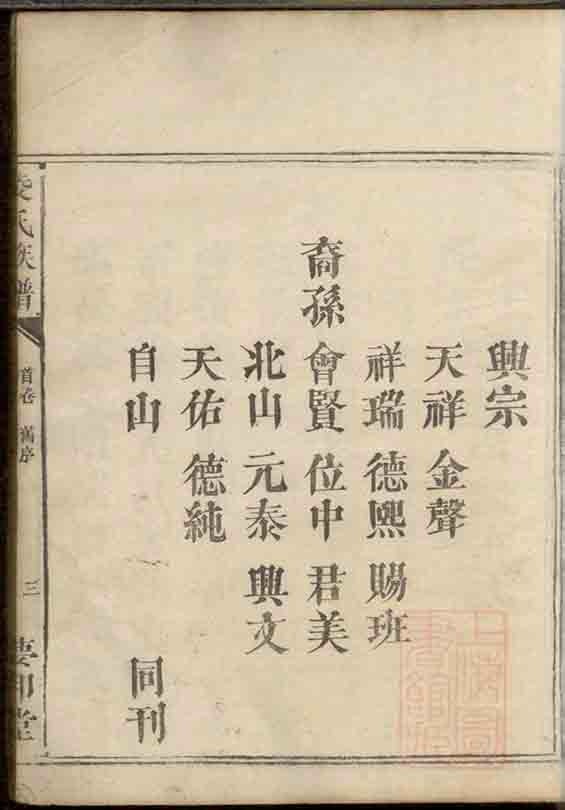 興宗
天祥 金聲
祥瑞 德熙 賜班
裔孫 會賢 位中 君美
北山 元泰 興文
天佑 德純
自山 同刊
氏族譜
首卷 舊序
三